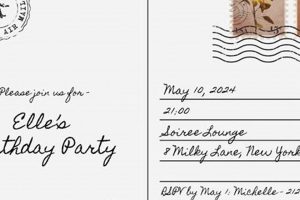 AIR MAIL
Please join us for -
Elle's
thday Party
May 10, 2024
21:00
Soiree Lounge
8 Milky Lane, New York
RSVP by May 1: Michelle - 212